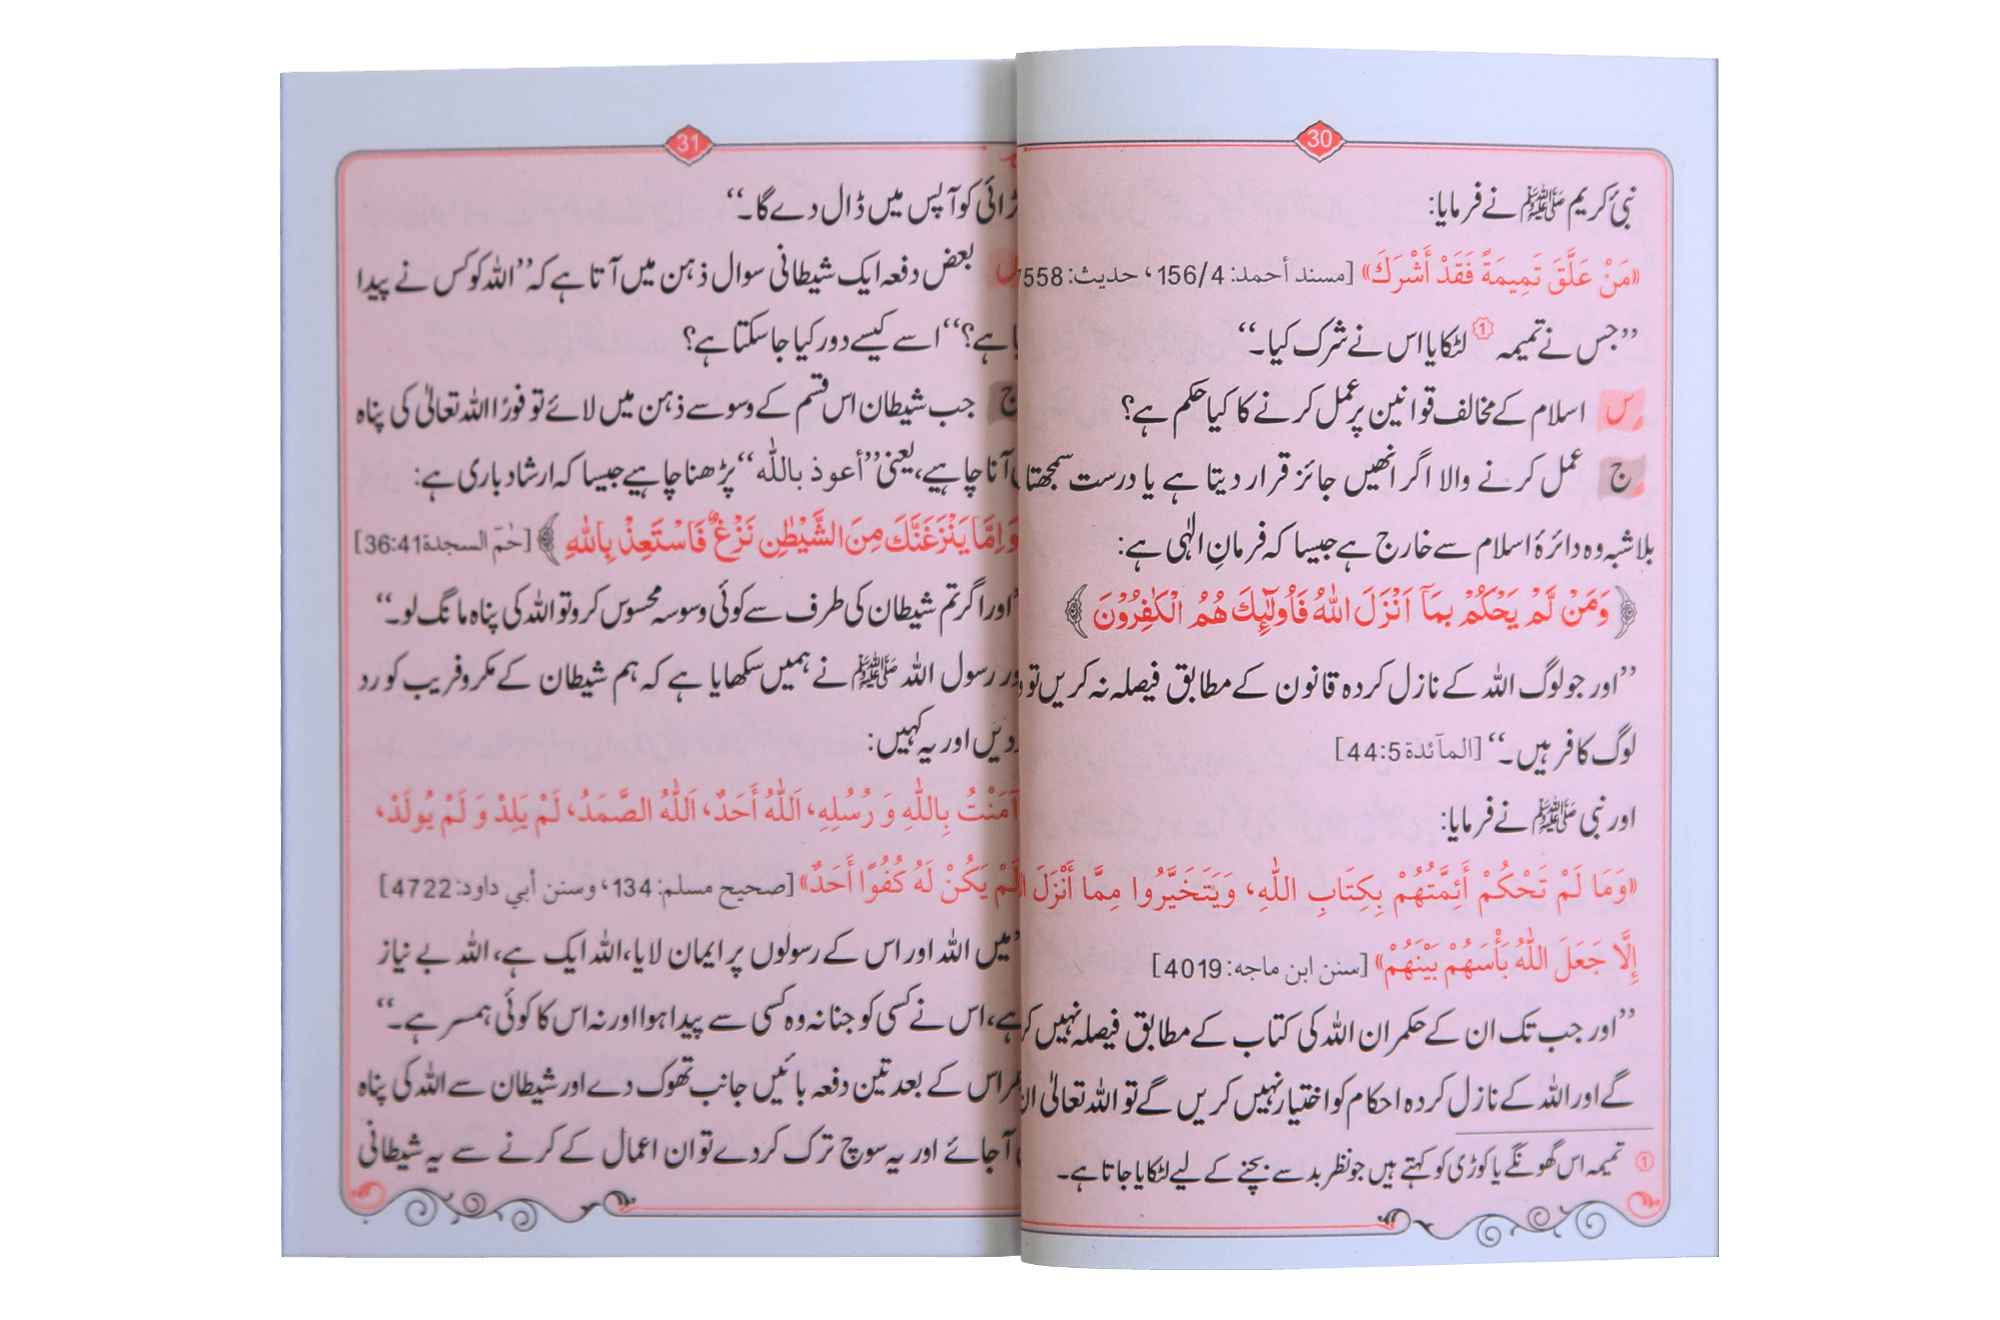 30
نبیٔ کریم ﷺ نے فرمایا:
«مَنْ عَلَّقَ تَمِيمَةً فَقَدْ أَشْرَكَ» [مسند أحمد: 156/4، حديث: 7558
’’جس نے تمیمہ ① لٹکایا اس نے شرک کیا۔‘‘
س اسلام کے مخالف قوانین پر عمل کرنے کا کیا حکم ہے؟
ج عمل کرنے والا اگر انھیں جائز قرار دیتا ہے یا درست سمجھتا
بلاشبہ وہ دائرۂ اسلام سے خارج ہے جیسا کہ فرمانِ الٰہی ہے:
﴿وَمَنْ لَّمْ يَحْكُمْ بِمَآ اَنْزَلَ اللّٰهُ فَاُولٰٓئِكَ هُمُ الْكٰفِرُوْنَ﴾
’’اور جو لوگ اللہ کے نازل کردہ قانون کے مطابق فیصلہ نہ کریں تو
لوگ کافر ہیں۔‘‘ [المآئدة 44:5]
اور نبی ﷺ نے فرمایا:
«وَمَا لَمْ تَحْكُمْ أَئِمَّتُهُمْ بِكِتَابِ اللّٰهِ، وَيَتَخَيَّرُوا مِمَّا أَنْزَلَ
إِلَّا جَعَلَ اللّٰهُ بَأْسَهُمْ بَيْنَهُمْ» [سنن ابن ماجه: 4019]
’’اور جب تک ان کے حکمران اللہ کی کتاب کے مطابق فیصلہ نہیں
گے اور اللہ کے نازل کردہ احکام کو اختیار نہیں کریں گے تو اللہ تعالیٰ
① تمیمہ اس گھونگے یا کوڑی کو کہتے ہیں جو نظر بد سے بچنے کے لیے لٹکایا جاتا ہے۔
31
کو آپس میں ڈال دے گا۔‘‘
س بعض دفعہ ایک شیطانی سوال ذہن میں آتا ہے کہ ’’اللہ کو کس نے پیدا
ہے؟‘‘ اسے کیسے دور کیا جا سکتا ہے؟
ج جب شیطان اس قسم کے وسوسے ذہن میں لائے تو فورًا اللہ تعالیٰ کی پناہ
آنا چاہیے، یعنی ’’أعوذ باللہ‘‘ پڑھنا چاہیے جیسا کہ ارشاد باری ہے:
وَاِمَّا يَنْزَغَنَّكَ مِنَ الشَّيْطٰنِ نَزْغٌ فَاسْتَعِذْ بِاللّٰهِ﴾ [حٰمٓ السجدة 36:41]
’اور اگر تم شیطان کی طرف سے کوئی وسوسہ محسوس کرو تو اللہ کی پناہ مانگ لو۔‘‘
رسول اللہ ﷺ نے ہمیں سکھایا ہے کہ ہم شیطان کے مکر و فریب کو رد
دیں اور یہ کہیں:
آمَنْتُ بِاللّٰهِ وَ رُسُلِهِ، اَللّٰهُ أَحَدٌ، اَللّٰهُ الصَّمَدُ، لَمْ يَلِدْ وَ لَمْ يُولَدْ،
لَمْ يَكُنْ لَهُ كُفُوًا أَحَدٌ» [صحيح مسلم: 134، وسنن أبي داود: 4722]
’میں اللہ اور اس کے رسولوں پر ایمان لایا، اللہ ایک ہے، اللہ بے نیاز
ہے، اس نے کسی کو جنا نہ وہ کسی سے پیدا ہوا اور نہ اس کا کوئی ہمسر ہے۔‘‘
اس کے بعد تین دفعہ بائیں جانب تھوک دے اور شیطان سے اللہ کی پناہ
آ جائے اور یہ سوچ ترک کر دے تو ان اعمال کے کرنے سے یہ شیطانی